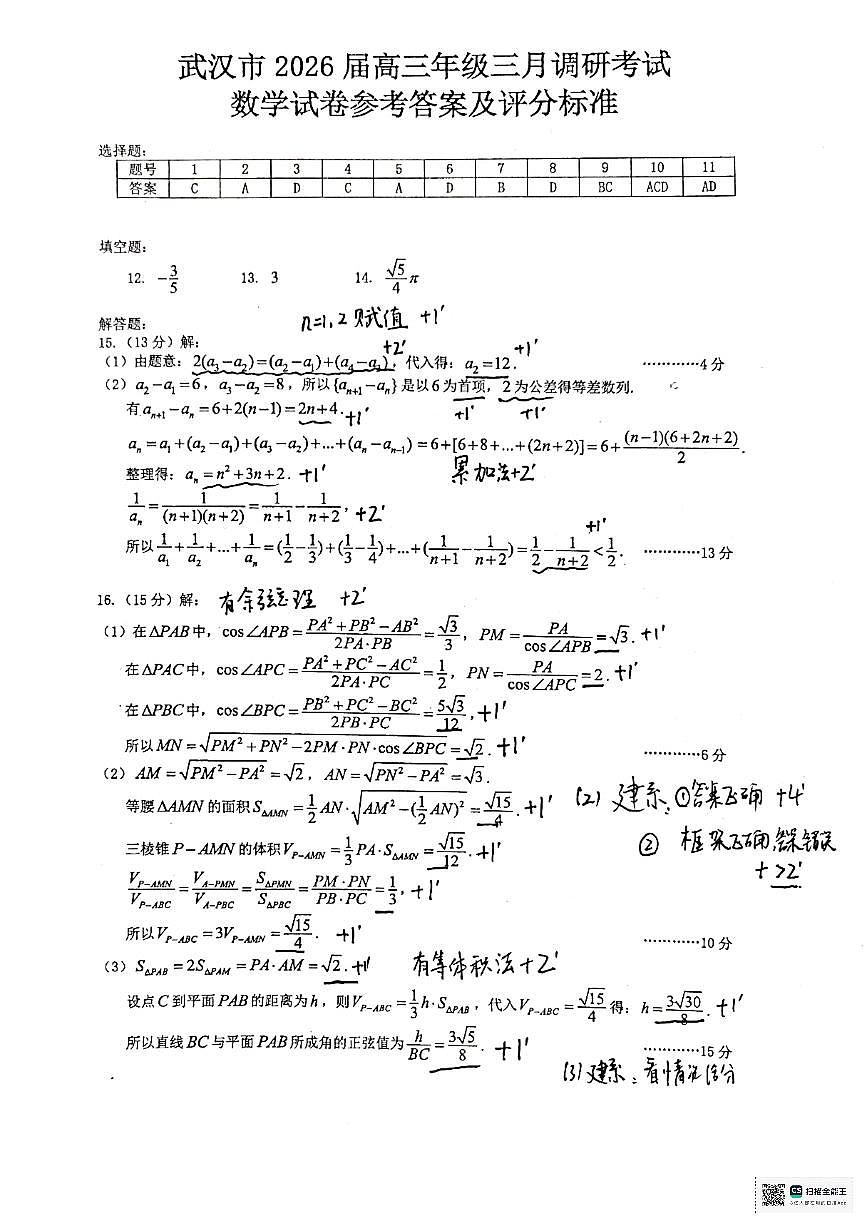 武汉市 2026 届高三年级三月调研考试
数学试卷参考答案及评分标准
选择题:
题号 1 2 3 4 5 6 7 8 9 10 11
答案 C A D C A D B D BC ACD AD
填空题:
12. -3/5 13. 3 14. √5/4 π
n=1,2 赋值 +1'
解答题:
15. (13 分) 解:
+2' +1'
(1) 由题意: 2(a₃-a₂)=(a₂-a₁)+(a₄-a₃), 代入得: a₂=12. …………4 分
(2) a₂-a₁=6, a₃-a₂=8, 所以{aₙ₊₁-aₙ}是以 6 为首项, 2 为公差得等差数列.
有 aₙ₊₁-aₙ=6+2(n-1)=2n+4. +1' +1' +1'
aₙ=a₁+(a₂-a₁)+(a₃-a₂)+...+(aₙ-aₙ₋₁)=6+[6+8+...+(2n+2)]=6+(n-1)(6+2n+2)/2.
整理得: aₙ=n²+3n+2. +1' 累加法+2'
1/aₙ=1/((n+1)(n+2))=1/(n+1)-1/(n+2), +2'
+1'
所以 1/a₁+1/a₂+...+1/aₙ=(1/2-1/3)+(1/3-1/4)+...+(1/(n+1)-1/(n+2))=1/2-1/(n+2)<1/2. …………13 分
16. (15 分) 解: 有余弦定理 +2'
(1) 在△PAB 中, cos∠APB=(PA²+PB²-AB²)/(2PA·PB)=√3/3, PM=PA/cos∠APB=√3. +1'
在△PAC 中, cos∠APC=(PA²+PC²-AC²)/(2PA·PC)=1/2, PN=PA/cos∠APC=2. +1'
在△PBC 中, cos∠BPC=(PB²+PC²-BC²)/(2PB·PC)=5√3/12, +1'
所以 MN=√(PM²+PN²-2PM·PN·cos∠BPC)=√2. +1' …………6 分
(2) AM=√(PM²-PA²)=√2, AN=√(PN²-PA²)=√3.
等腰△AMN 的面积 S△AMN=1/2 AN·√(AM²-(1/2 AN)²)=√15/4. +1' (2) 建系: ①答案正确 +4'
三棱锥 P-AMN 的体积 V_P-AMN=1/3 PA·S△AMN=√15/12. +1' ② 框架正确,答案错误
+ >2'
V_P-AMN/V_P-ABC=V_A-PMN/V_A-PBC=S△PMN/S△PBC=PM·PN/PB·PC=1/3, +1'
所以 V_P-ABC=3V_P-AMN=√15/4. +1' …………10 分
(3) S△PAB=2S△PAM=PA·AM=√2. +1' 有等体积法+2'
设点 C 到平面 PAB 的距离为 h, 则 V_P-ABC=1/3 h·S△PAB, 代入 V_P-ABC=√15/4 得: h=3√30/8. +1'
所以直线 BC 与平面 PAB 所成角的正弦值为 h/BC=3√5/8. +1' …………15 分
(3) 建系: 看情况给分
CS 扫描全能王